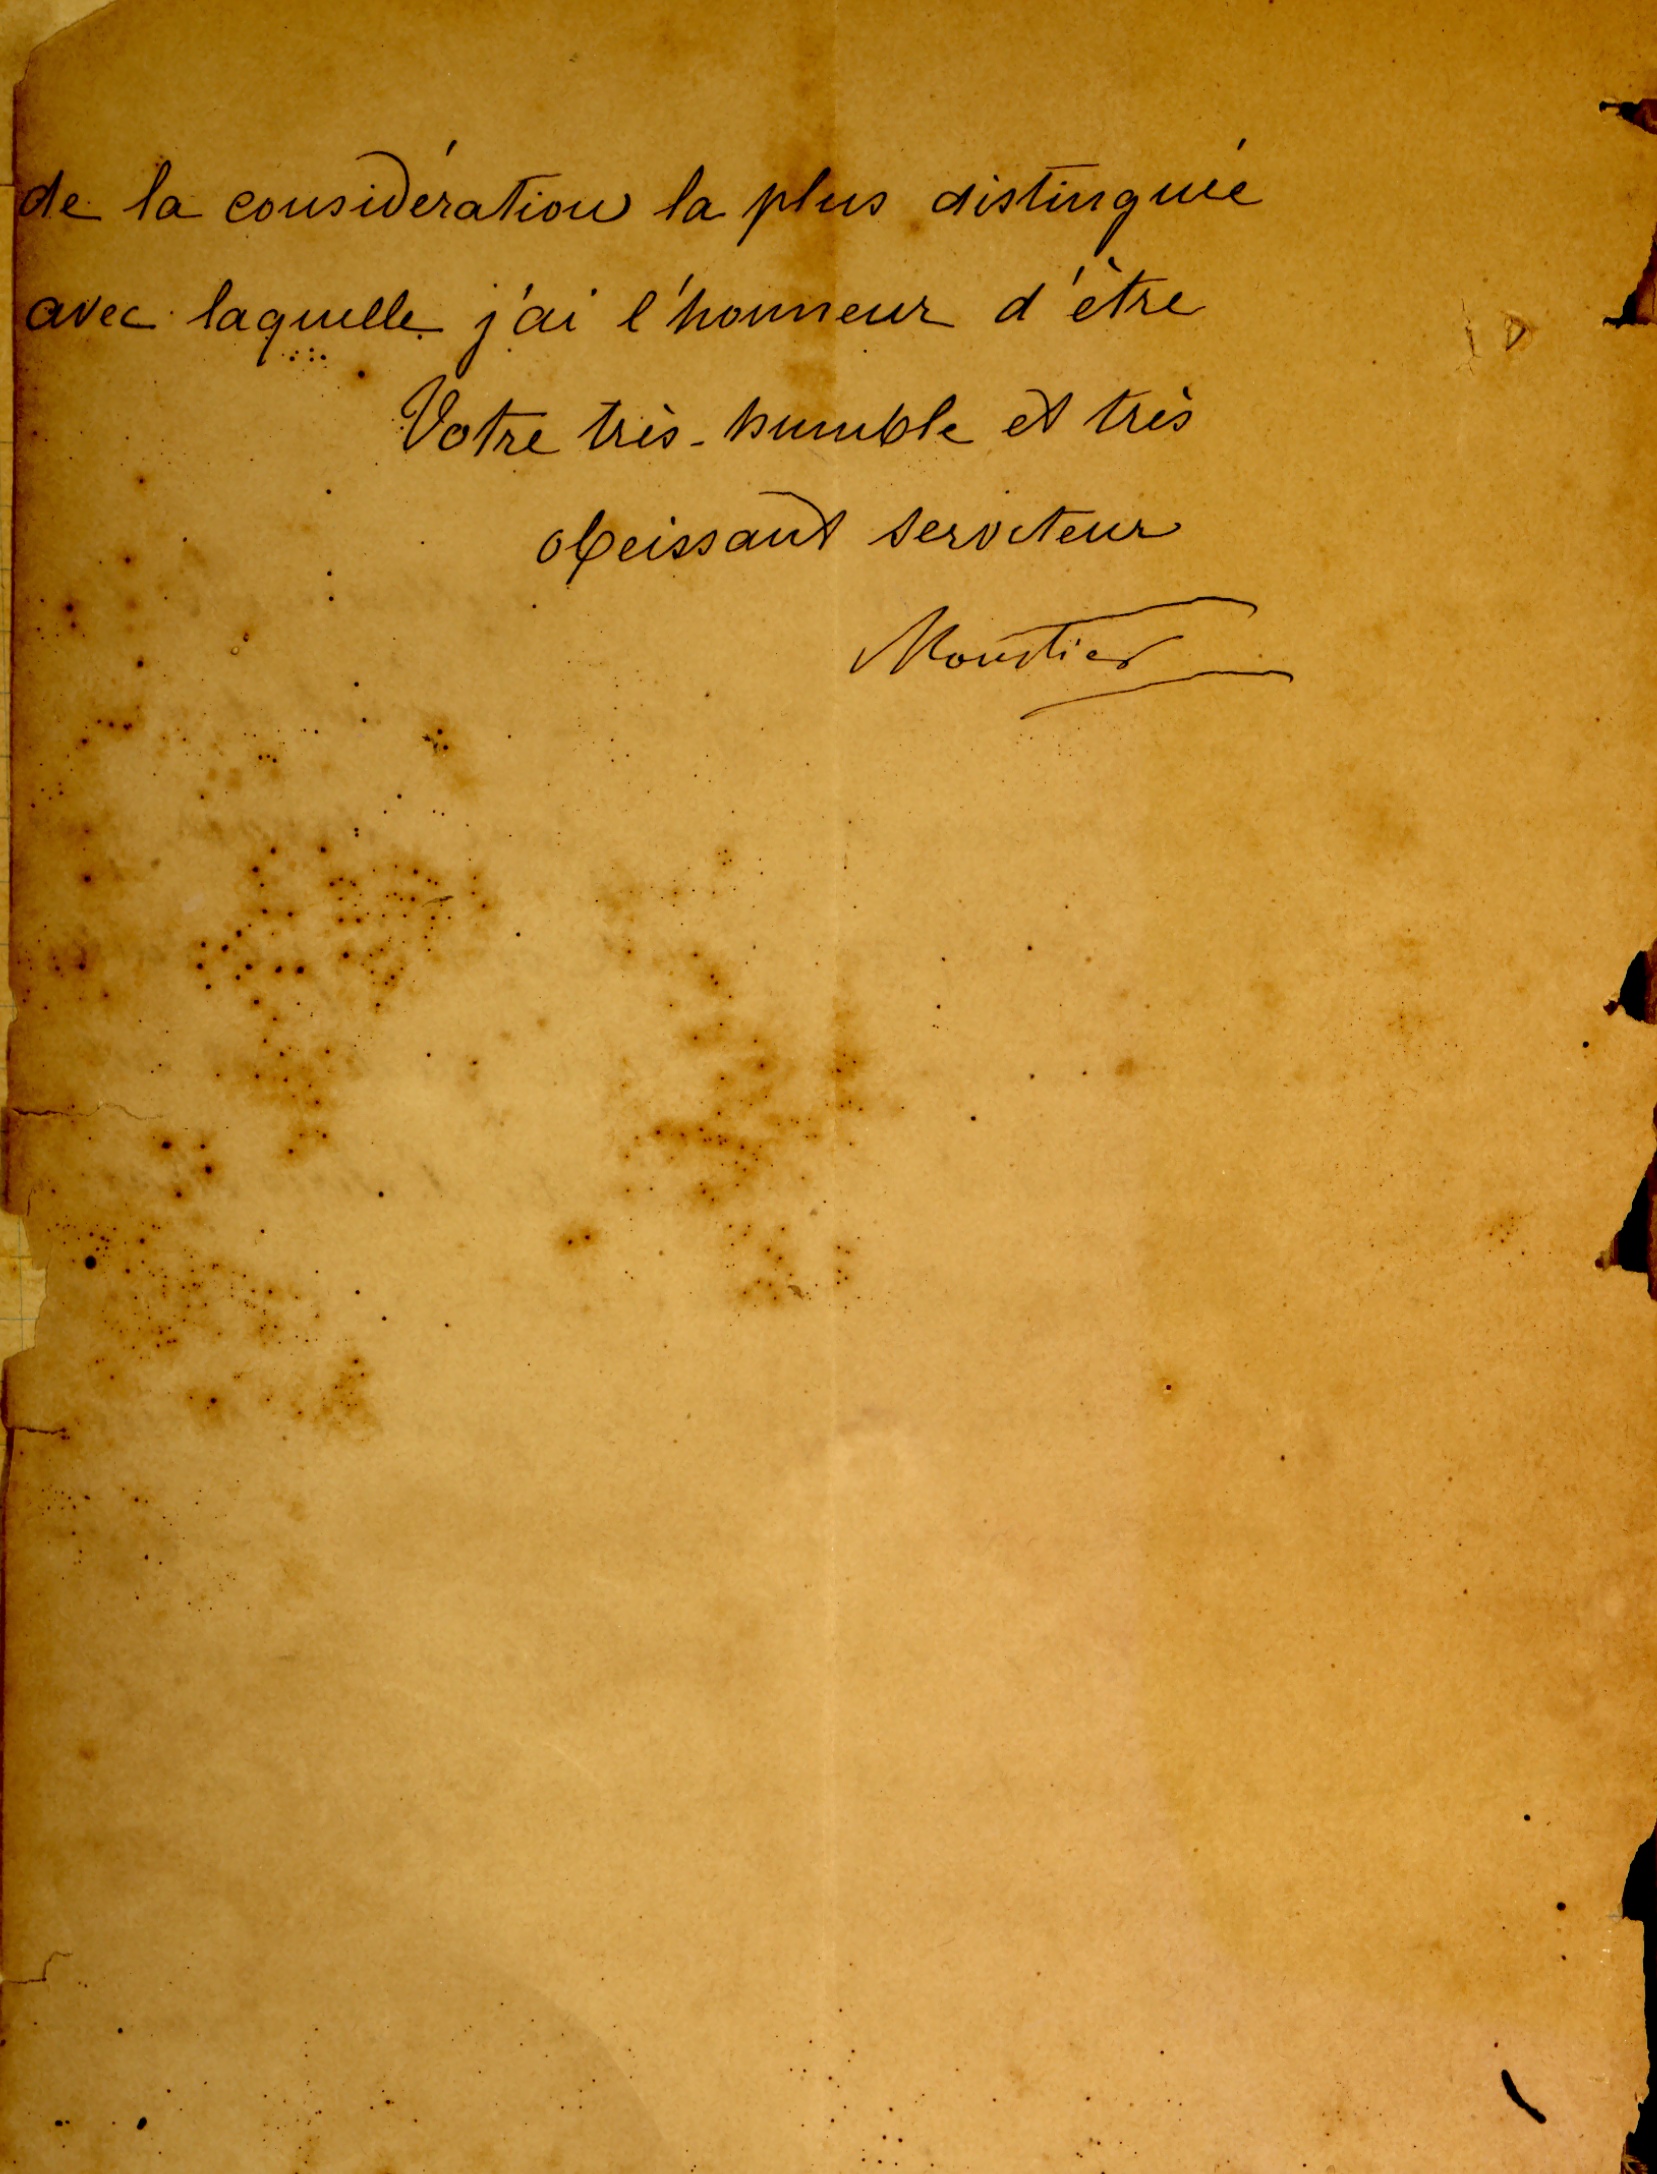 de la considération la plus distinguée
avec laquelle j'ai l'honneur d'être
Votre très-humble et très
obeissant serviteur
Moustier